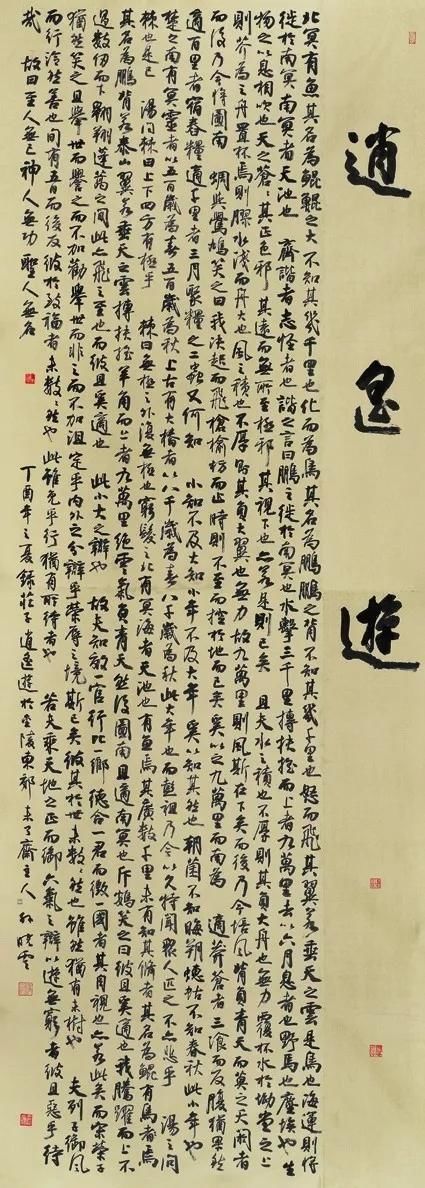 逍遥遊
北冥有魚其名為鯤鯤之大不知其幾千里也化而為鳥其名為鵬鵬之背不知其幾千里也怒而飛其翼若垂天之雲是鳥也海運則將
徙於南冥南冥者天池也 齊諧者志怪者也諧之言曰鵬之徙於南冥也水擊三千里摶扶搖而上者九萬里去以六月息者也野馬也塵埃也生
物之以息相吹也天之蒼蒼其正色邪其遠而無所至極邪其視下也亦若是則已矣 且夫水之積也不厚則其負大舟也無力覆杯水於坳堂之上
則芥為之舟置杯焉則膠水淺而舟大也風之積也不厚則其負大翼也無力故九萬里則風斯在下矣而後乃今培風背負青天而莫之夭閼者
而後乃今將圖南 蜩與鷽鳩笑之曰我決起而飛槍榆枋而止時則不至而控於地而已矣奚以之九萬里而南為 適莽蒼者三飡而反腹猶果然
適百里者宿舂糧適千里者三月聚糧之二蟲又何知 小知不及大知小年不及大年奚以知其然也朝菌不知晦朔蟪蛄不知春秋此小年也
楚之南有冥靈者以五百歲為春五百歲為秋上古有大椿者以八千歲為春八千歲為秋此大年也而彭祖乃今以久特聞眾人匹之不亦悲乎 湯之問
棘也是已 湯問棘曰上下四方有極乎 棘曰無極之外復無極也窮髮之北有冥海者天池也有魚焉其廣數千里未有知其脩者其名為鯤有鳥焉
其名為鵬背若泰山翼若垂天之雲摶扶搖羊角而上者九萬里絕雲氣負青天然後圖南且適南冥也斥鴳笑之曰彼且奚適也我騰躍而上不
過數仞而下翱翔蓬蒿之間此亦飛之至也而彼且奚適也 此小大之辯也 故夫知效一官行比一鄉德合一君而徵一國者其自視也亦若此矣而宋榮子
猶然笑之且舉世而譽之而不加勸舉世而非之而不加沮定乎內外之分辯乎榮辱之境斯已矣彼其於世未數數然也雖然猶有未樹也 夫列子御風
而行泠然善也旬有五日而後反彼於致福者未數數然也此雖免乎行猶有所待者也 若夫乘天地之正而御六氣之辯以遊無窮者彼且惡乎待
哉 故曰至人無己神人無功聖人無名 丁酉年之夏錄莊子逍遥遊於金陵東郊 未了齋主人 孫曉雲